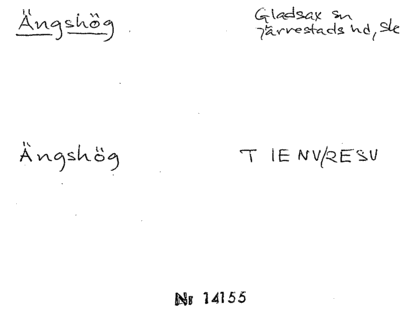 Ängshög
Gladsax sn
Järrestads hd, Sk
Ängshög
T IE NV/RESV
Nr 14155